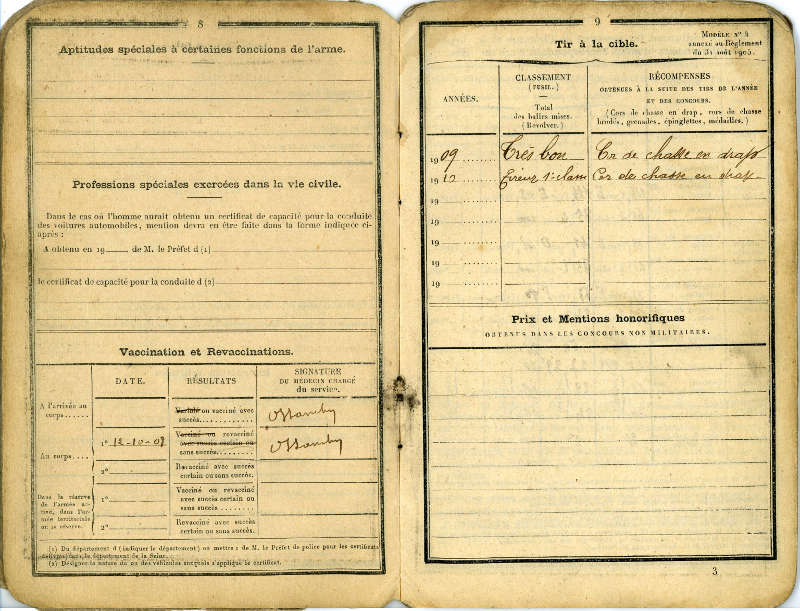 8
Aptitudes spéciales à certaines fonctions de l'arme.
Professions spéciales exercées dans la vie civile.
Dans le cas où l'homme aurait obtenu un certificat de capacité pour la conduite
des voitures automobiles, mention devra en être faite dans la forme indiquée ci-
après :
A obtenu en 19 de M. le Préfet d (1)
le certificat de capacité pour la conduite d (2)
Vaccination et Revaccinations.
DATE.
RÉSULTATS
SIGNATURE
DU MÉDECIN CHARGÉ
du service.
A l'arrivée au
corps......
Variolé ou vacciné avec
succès............
Au corps....
1° 12-10-09
Vacciné ou revacciné
avec succès certain ou
sans succès.........
2°
Revacciné avec succès
certain ou sans succès.
Dans la réserve
de l'armée ac-
tive, dans l'ar-
mée territoriale
ou sa réserve.
1°
Vacciné ou revacciné
avec succès certain ou
sans succès........
2°
Revacciné avec succès
certain ou sans succès.
(1) Du département d (indiquer le département) ou mettre : de M. le Préfet de police pour les certificats
délivrés dans le département de la Seine.
(2) Désigner la nature du ou des véhicules auxquels s'applique le certificat.
9
Tir à la cible.
MODÈLE N° 4
annexé au Règlement
du 31 août 1905.
ANNÉES.
CLASSEMENT
(FUSIL.)
Total
des balles mises.
(Revolver.)
RÉCOMPENSES
OBTENUES À LA SUITE DES TIRS DE L'ANNÉE
ET DES CONCOURS.
(Cors de chasse en drap, cors de chasse
brodés, grenades, épinglettes, médailles.)
1909 ....... Très bon Cor de chasse en drap
1910 ....... Tireur 1e classe Cor de chasse en drap.
19 .......
19 .......
19 .......
19 .......
19 .......
Prix et Mentions honorifiques
OBTENUS DANS LES CONCOURS NON MILITAIRES.
3